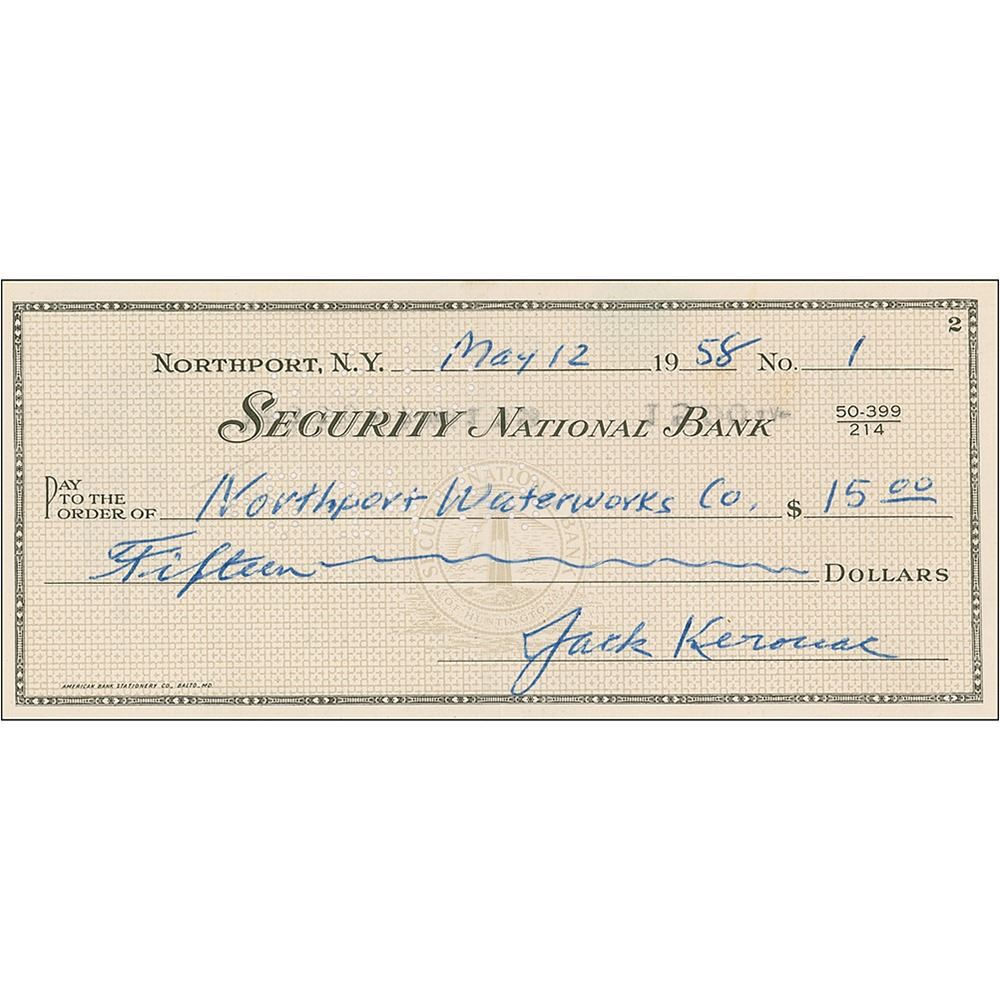 2
NORTHPORT, N.Y. May 12 19 58 No. 1
SECURITY NATIONAL BANK 50-399
214
PAY TO THE ORDER OF Northport Waterworks Co. $ 15 00
Fifteen DOLLARS
Jack Kerouac
AMERICAN BANK STATIONERY CO., BALTO., MD.